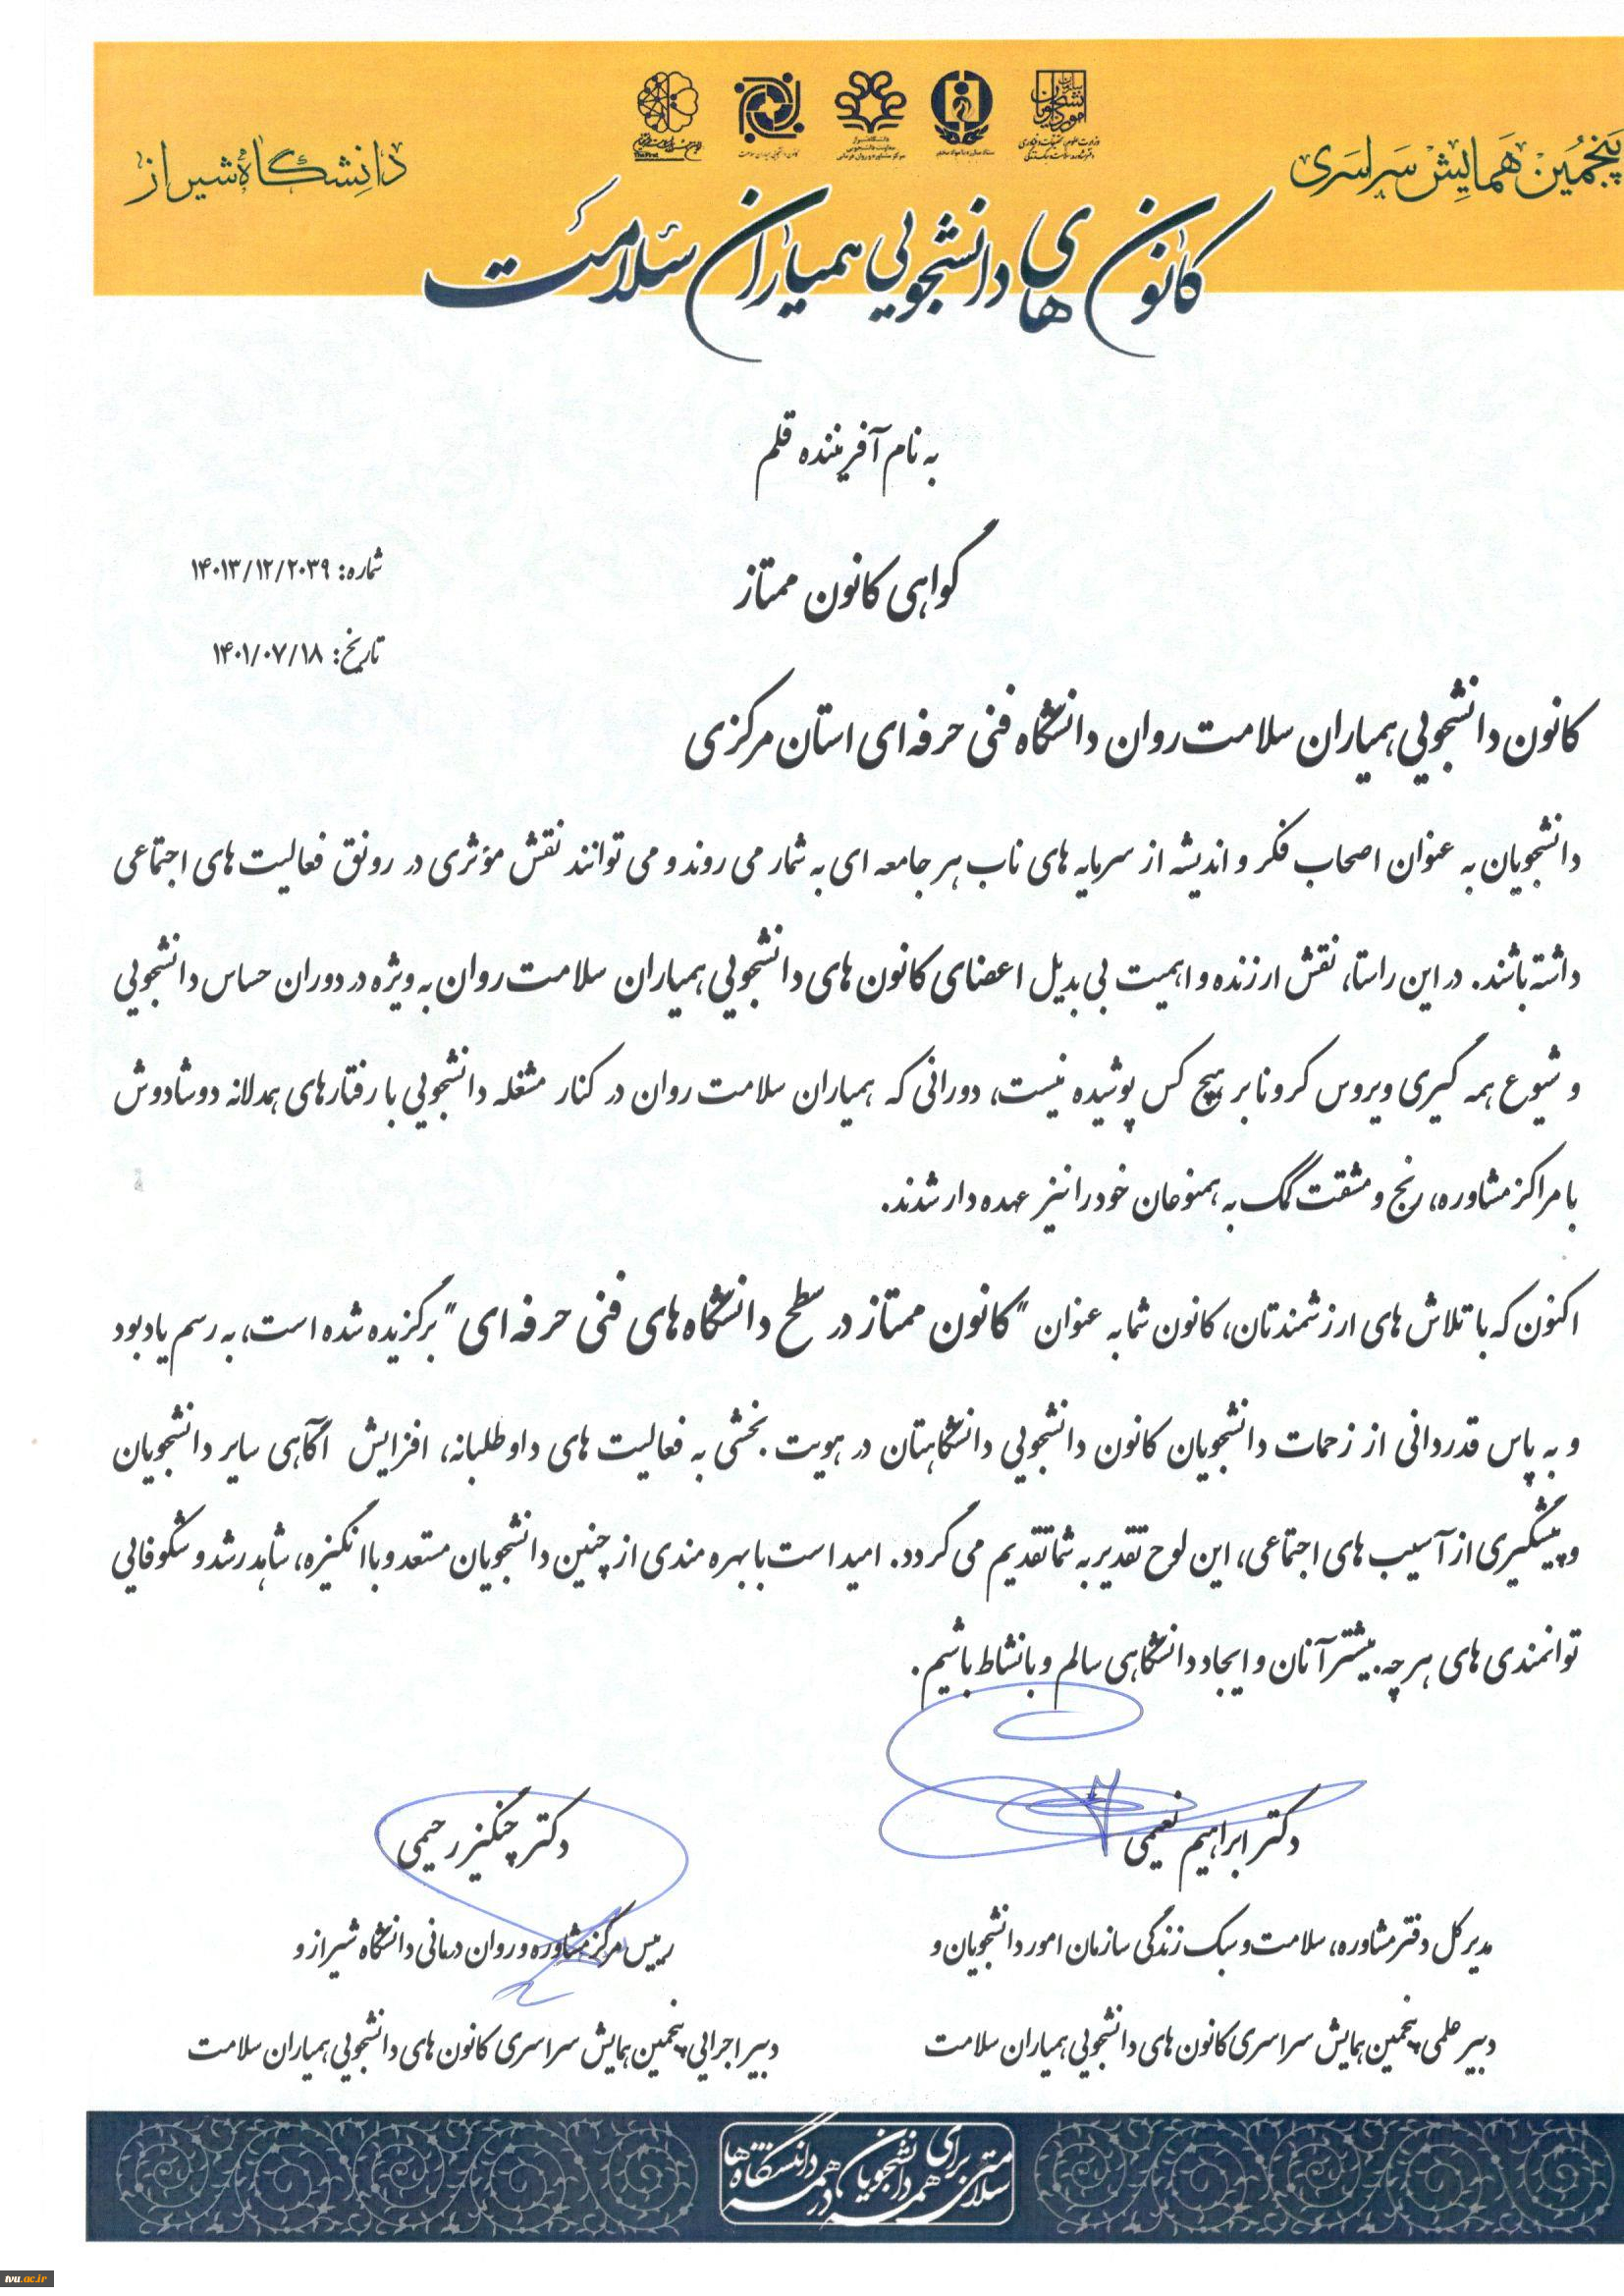 پنجمین همایش سراسری
دانشگاه شیراز
کانون های دانشجویی همیاران سلامت
به نام آفریننده قلم
گواهی کانون ممتاز
شماره: ۱۴۰۱۳/۱۲/۲۰۳۹
تاریخ: ۱۴۰۱/۰۷/۱۸
کانون دانشجویی همیاران سلامت روان دانشگاه فنی حرفه ای استان مرکزی
دانشجویان به عنوان اصحاب فکر و اندیشه از سرمایه های ناب هر جامعه ای به شمار می روند و می توانند نقش مؤثری در رونق فعالیت های اجتماعی
داشته باشند. در این راستا، نقش ارزنده و اهمیت بی بدیل اعضای کانون های دانشجویی همیاران سلامت روان به ویژه در دوران حساس دانشجویی
و شیوع همه گیری ویروس کرونا بر هیچ کس پوشیده نیست، دورانی که همیاران سلامت روان در کنار مشغله دانشجویی با رفتارهای همدلانه دوشادوش
با مراکز مشاوره، رنج و مشقت کمک به همنوعان خود را نیز عهده دار شدند.
اکنون که با تلاش های ارزشمندتان، کانون شما به عنوان "کانون ممتاز در سطح دانشگاه های فنی حرفه ای" برگزیده شده است، به رسم یادبود
و به پاس قدردانی از زحمات دانشجویان کانون دانشجویی دانشگاهتان در هویت بخشی به فعالیت های داوطلبانه، افزایش آگاهی سایر دانشجویان
و پیشگیری از آسیب های اجتماعی، این لوح تقدیر به شما تقدیم می گردد. امید است با بهره مندی از چنین دانشجویان مستعد و با انگیزه، شاهد رشد و شکوفایی
توانمندی های هر چه بیشتر آنان و ایجاد دانشگاهی سالم و بانشاط باشیم.
دکتر ابراهیم نعیمی
مدیر کل دفتر مشاوره، سلامت و سبک زندگی سازمان امور دانشجویان و
دبیر علمی پنجمین همایش سراسری کانون های دانشجویی همیاران سلامت
دکتر چنگیز رحیمی
رییس مرکز مشاوره و روان درمانی دانشگاه شیراز و
دبیر اجرایی پنجمین همایش سراسری کانون های دانشجویی همیاران سلامت
سلامتی برای همه دانشجویان در همه دانشگاه ها
tvu.ac.ir